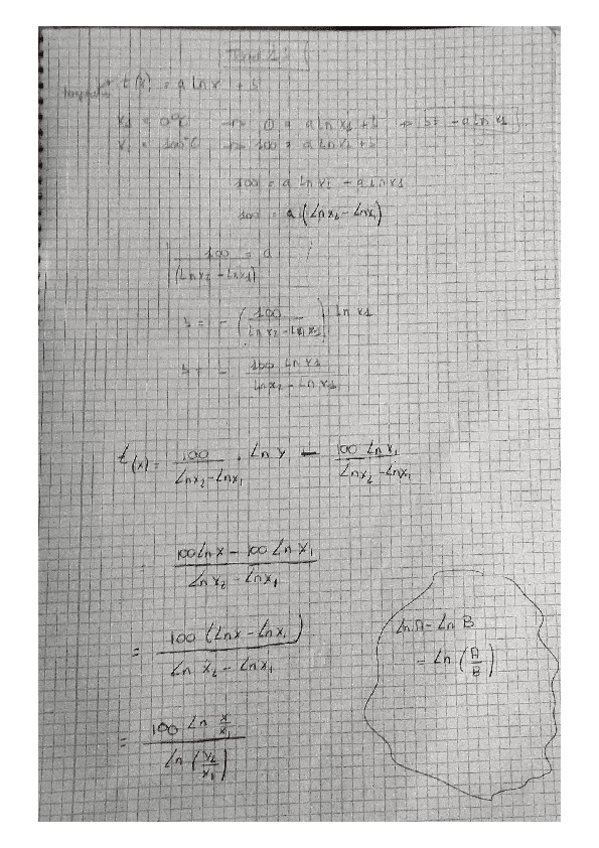 t(x) = a ln x + b
x1 = 0°C → 0 = a ln x1 + b → b = -a ln x1
x2 = 100°C → 100 = a ln x2 + b
100 = a ln x2 - a ln x1
100 = a (Ln x2 - Ln x1)
100 / (Ln x2 - Ln x1) = a
b = - (100 / (Ln x2 - Ln x1)) ln x1
b = - 100 Ln x1 / (Ln x2 - Ln x1)
t(x) = 100 / (Ln x2 - Ln x1) . Ln x - 100 Ln x1 / (Ln x2 - Ln x1)
(100 Ln x - 100 Ln x1) / (Ln x2 - Ln x1)
= 100 (Ln x - Ln x1) / (Ln x2 - Ln x1)
= 100 Ln (x / x1) / Ln (x2 / x1)
Ln A - Ln B
= Ln (A / B)